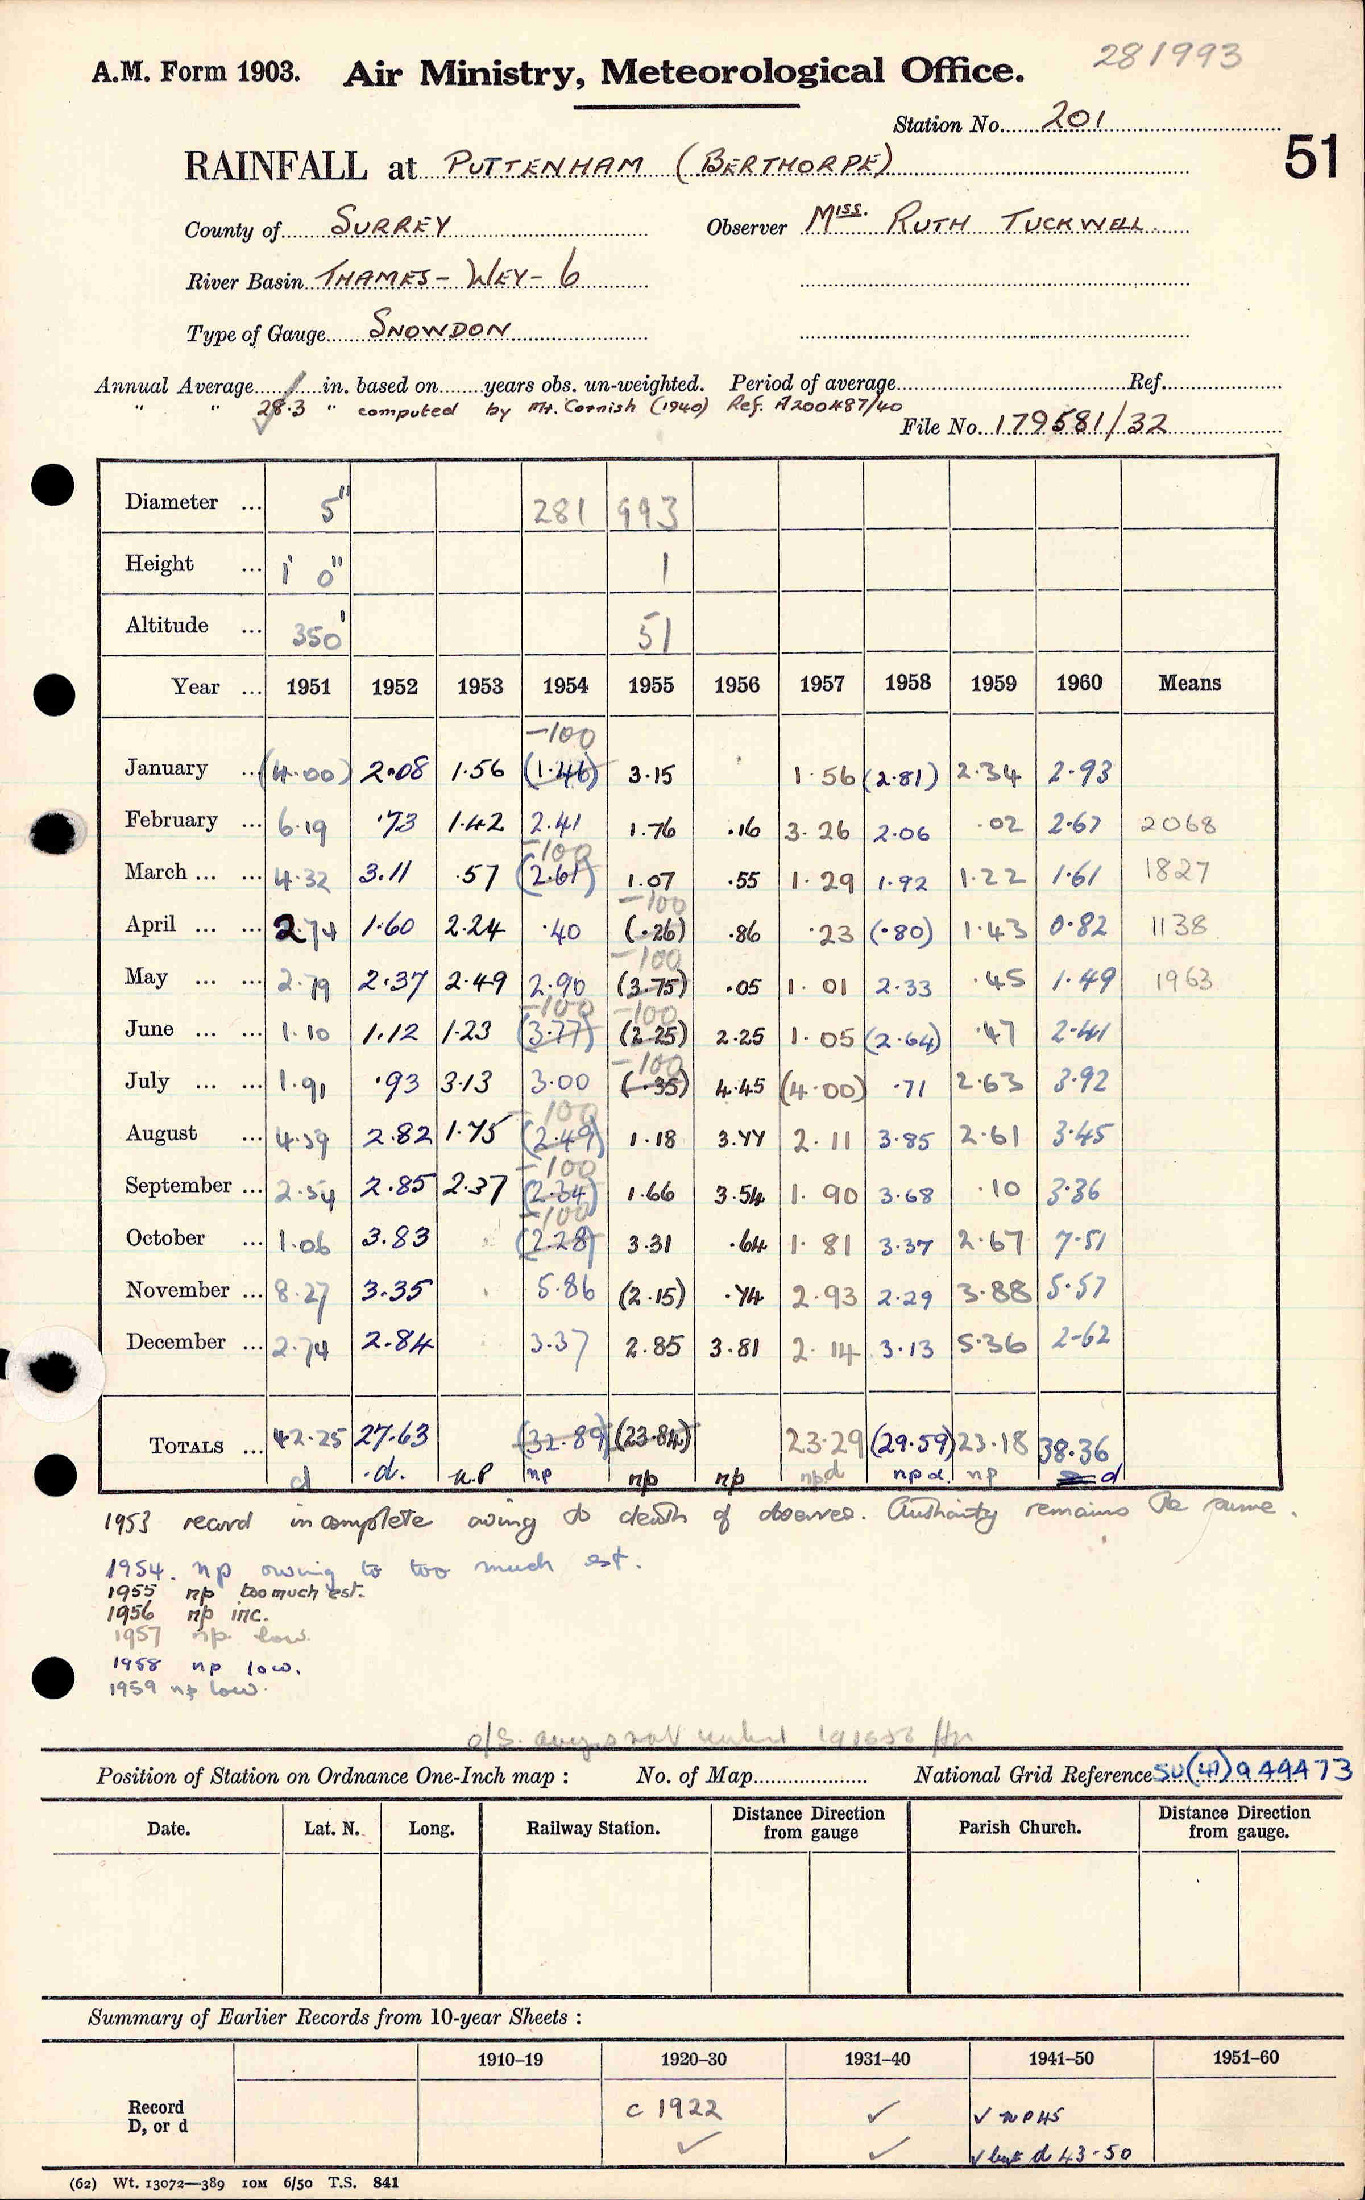 281993
A.M. Form 1903. Air Ministry, Meteorological Office.
Station No. 201
51
RAINFALL at PUTTENHAM (BERTHORPE)
County of SURREY Observer MISS. RUTH TUCKWELL
River Basin THAMES - WEY - 6
Type of Gauge SNOWDON
Annual Average / in. based on years obs. un-weighted. Period of average Ref.
" " 28.3 " computed by Mr. Cornish (1940) Ref. A200487/40
File No. 179581/32
Diameter ... 5" 281 993
Height ... 1' 0" 1
Altitude ... 350' 51
Year ... 1951 1952 1953 1954 1955 1956 1957 1958 1959 1960 Means
-100
January ... (4.00) 2.08 1.56 (1.46) 3.15 1.56 (2.81) 2.34 2.93
February ... 6.19 .73 1.42 2.41 1.76 .16 3.26 2.06 .02 2.67 2068
-100
March ... ... 4.32 3.11 .57 (2.61) 1.07 .55 1.29 1.92 1.22 1.61 1827
-100
April ... ... 2.74 1.60 2.24 .40 (.26) .86 .23 (.80) 1.43 0.82 1138
-100
May ... ... 2.79 2.37 2.49 2.90 (3.75) .05 1.01 2.33 .45 1.49 1963
-100 -100
June ... ... 1.10 1.12 1.23 (3.77) (2.25) 2.25 1.05 (2.64) .47 2.41
-100
July ... ... 1.91 .93 3.13 3.00 (.35) 4.45 (4.00) .71 2.63 3.92
-100
August ... 4.59 2.82 1.75 (2.49) 1.18 3.44 2.11 3.85 2.61 3.45
-100
September ... 2.54 2.85 2.37 (2.34) 1.66 3.54 1.90 3.68 .10 3.36
-100
October ... 1.06 3.83 (2.28) 3.31 .64 1.81 3.37 2.67 7.51
November ... 8.27 3.35 5.86 (2.15) .74 2.93 2.29 3.88 5.57
December ... 2.74 2.84 3.37 2.85 3.81 2.14 3.13 5.36 2.62
TOTALS ... 42.25 27.63 (32.89) (23.84) 23.29 (29.59) 23.18 38.36
d .d. n.p np np np npd npd. np d
1953 record incomplete owing to death of observer. Authority remains the same.
1954. np owing to too much est.
1955 np too much est.
1956 np inc.
1957 np. low.
1958 np low.
1959 np low.
Position of Station on Ordnance One-Inch map : No. of Map National Grid Reference SU(41)949473
Date. Lat. N. Long. Railway Station. Distance Direction from gauge Parish Church. Distance Direction from gauge.
Summary of Earlier Records from 10-year Sheets :
1910–19 1920–30 1931–40 1941–50 1951–60
Record D, or d c 1922 ✓ ✓ NP45
✓ ✓ ✓ but d 43-50
(62) Wt. 13072—389 10M 6/50 T.S. 841